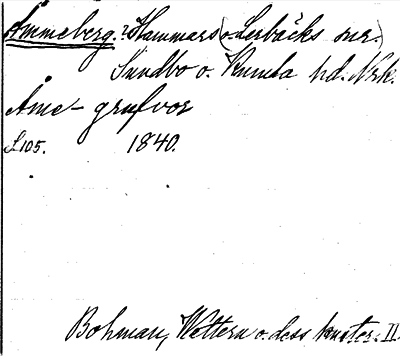 Åmmeberg. ? Hammars (o. Lerbäcks snr.)
Sundbo o. Kumla hd. Nrk.
Åme- grufvor
S. 105. 1840.
Bohman, Wettern o. dess kuster. II.